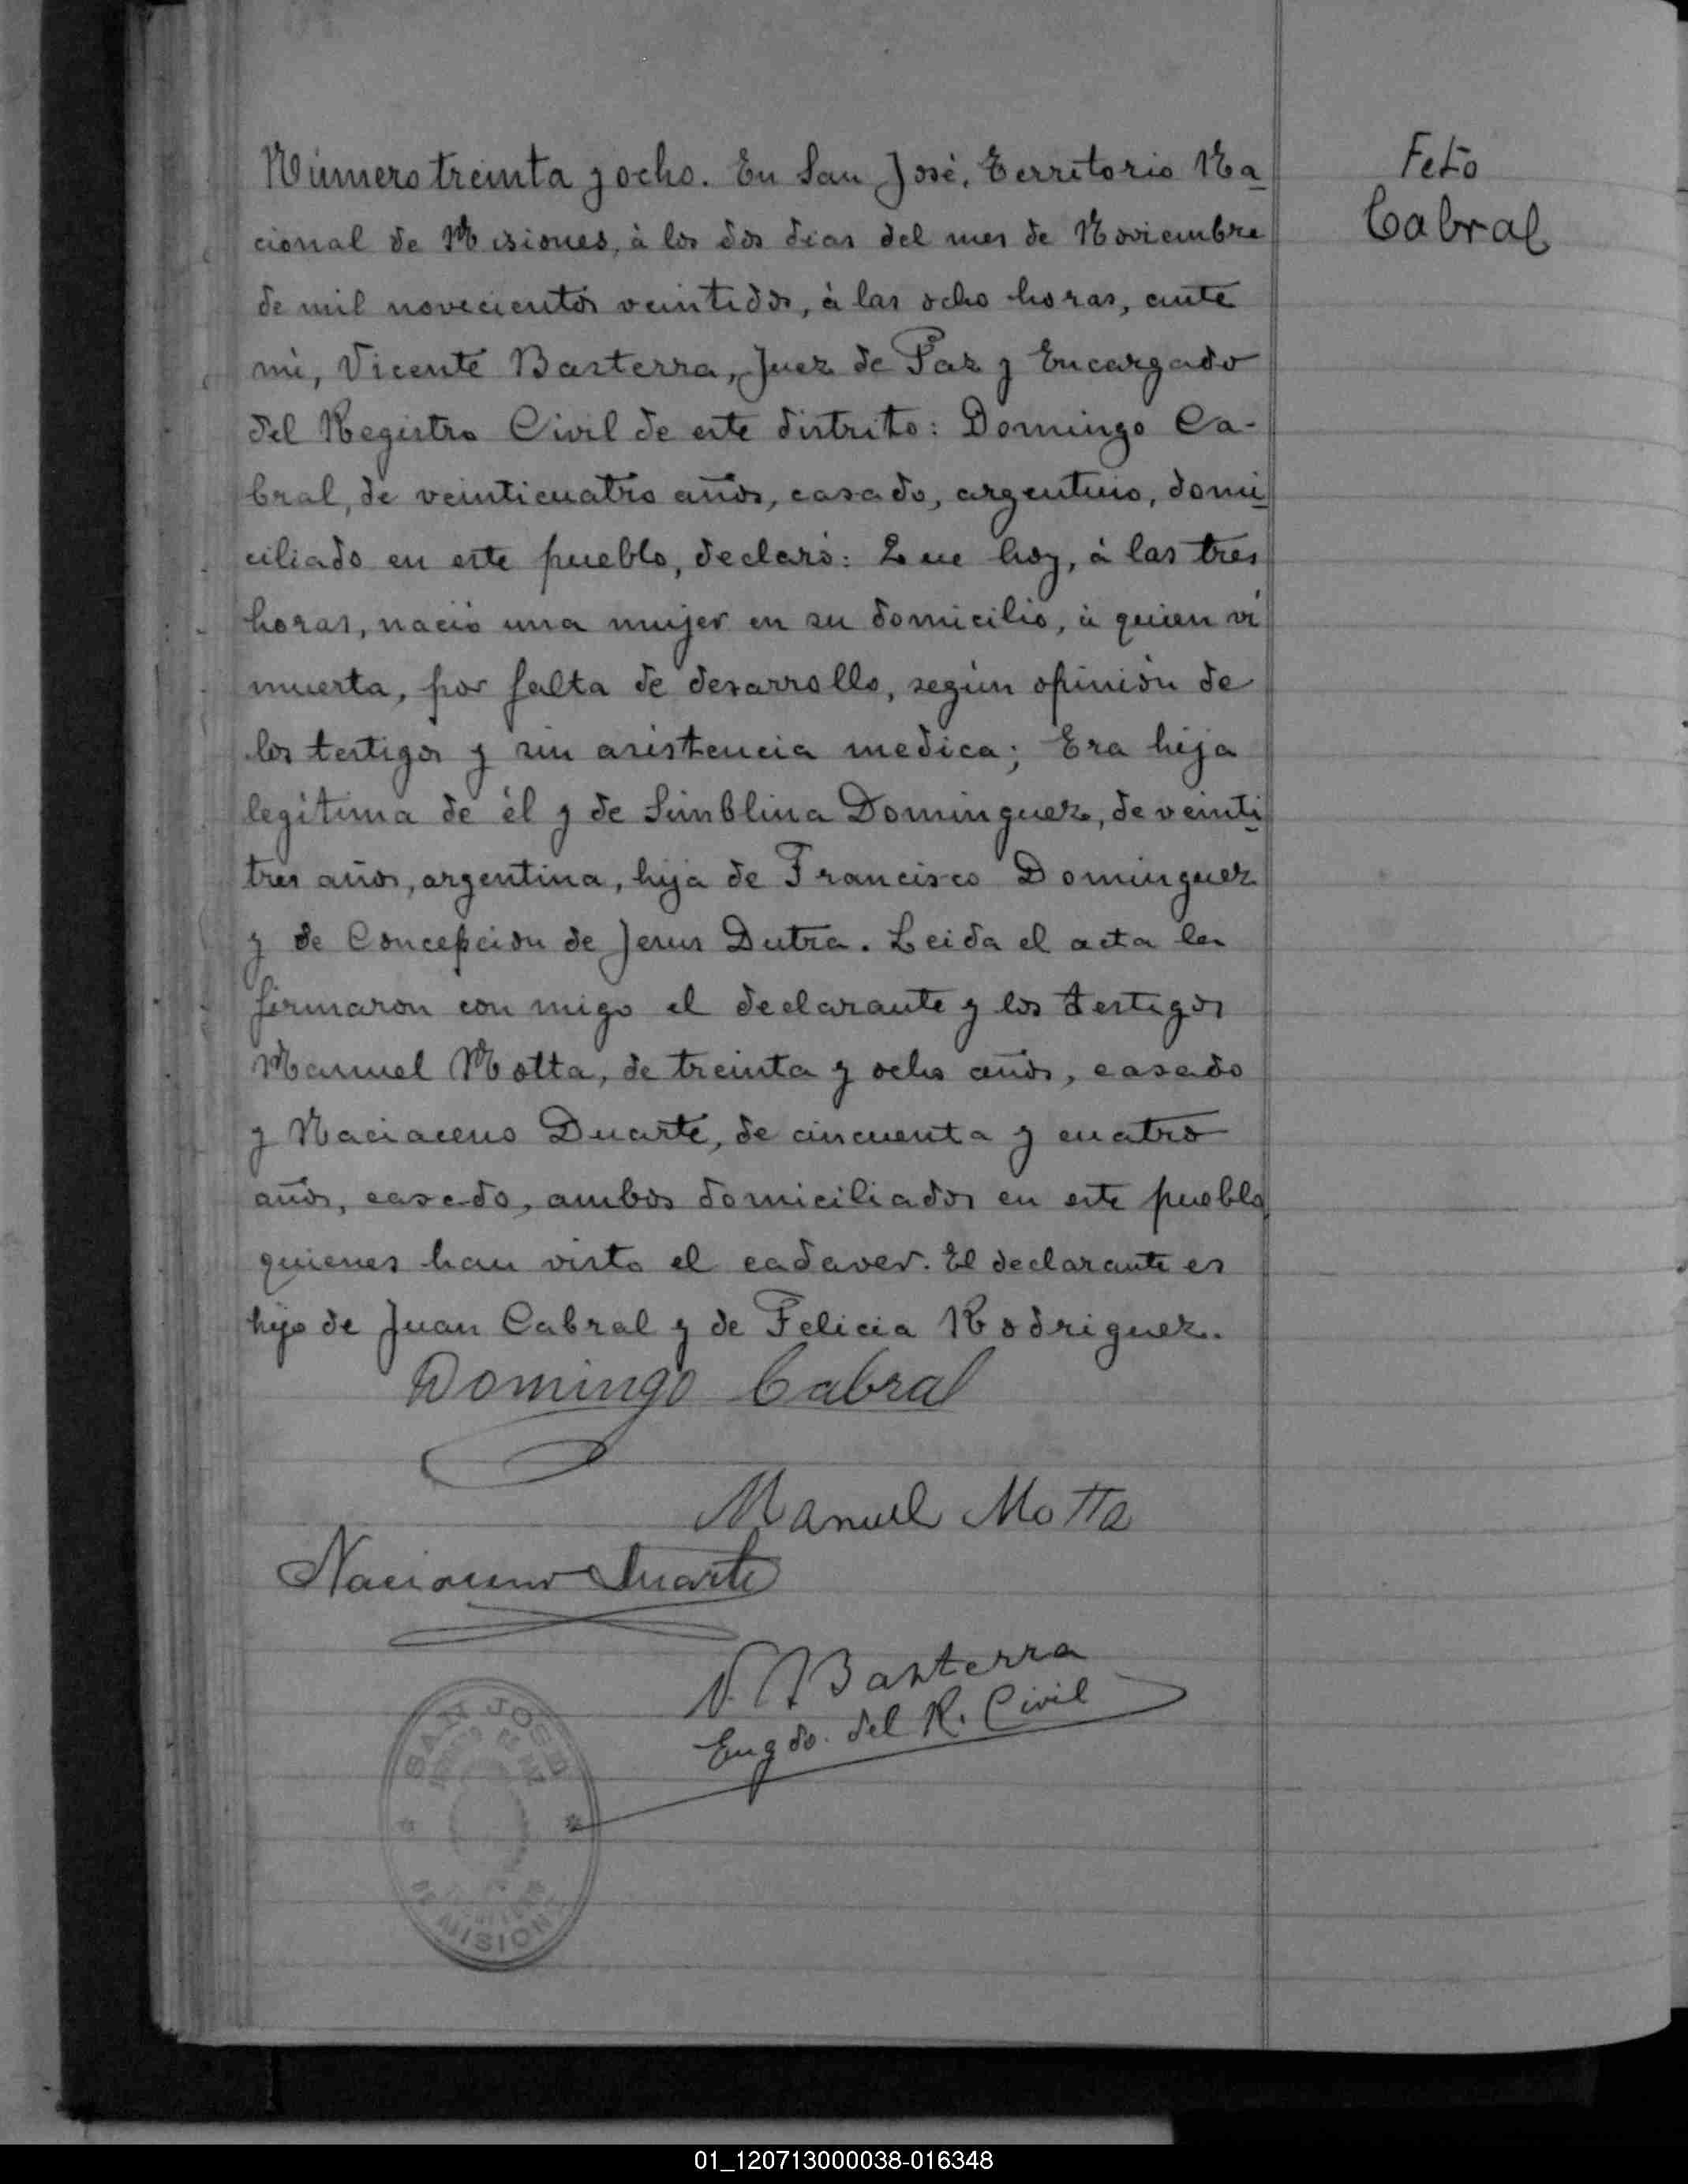 Número treinta y ocho. En San José, Territorio Na
cional de Misiones, à los dos dias del mes de Noviembre
de mil novecientos veintidos, à las ocho horas, ante
mi, Vicente Basterra, Juez de Paz y Encargado
del Registro Civil de este distrito: Domingo Ca-
bral, de veinticuatro años, casado, argentino, domi
ciliado en este pueblo, declaró: Que hoy, à las tres
horas, nació una mujer en su domicilio, à quien vi
muerta, por falta de desarrollo, según opinión de
los testigos y sin asistencia medica; Era hija
legítima de él y de Simblina Dominguez, de veinti
tres años, argentina, hija de Francisco Dominguez
y de Concepcion de Jesus Dutra. Leida el acta la
firmaron con migo el declarante y los testigos
Manuel Motta, de treinta y ocho años, casado
y Naciaceno Duarte, de cincuenta y cuatro
años, casado, ambos domiciliados en este pueblo,
quienes han visto el cadaver. El declarante es
hijo de Juan Cabral y de Felicia Rodriguez.
Domingo Cabral
Manuel Motta
Duarte
V. Basterra
Engdo. del R. Civil
SAN JOSE
MISION
Feto
Cabral
01_120713000038-016348